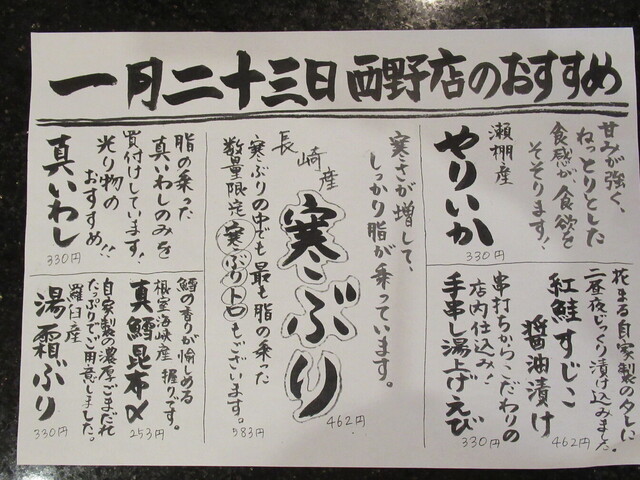 一月二十三日 西野店のおすすめ
甘みが強く、
ねっとりとした
食感が食欲を
そそります！
瀬棚産
やりいか
330円
花まる自家製のタレに
二昼夜じっくり漬け込みました。
紅鮭すじこ
醤油漬け
462円
串打ちからこだわりの
店内仕込み！
手串し湯上げえび
330円
寒さが増して、
しっかり脂が乗っています。
長崎産
寒ぶり
462円
寒ぶりの中でも最も脂の乗った
数量限定寒ぶりトロもございます。
583円
脂の乗った
真いわしのみを
買付けしています！
光り物の
おすすめ！！
真いわし
330円
鱈の香りが愉しめる
根室海峡産 握りです。
真鱈昆布〆
253円
自家製の濃厚ごまだれ
たっぷりでご用意しました。
羅臼産
湯霜ぶり
330円